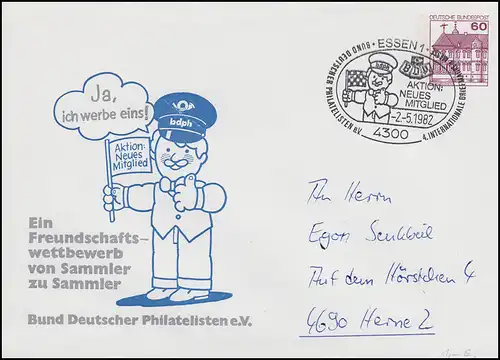 Ja,
ich werbe eins!
bdph
Aktion:
Neues
Mitglied
Ein
Freundschafts-
wettbewerb
von Sammler
zu Sammler
Bund Deutscher Philatelisten e.V.
DEUTSCHE BUNDESPOST
60
ESSEN 1
BUND DEUTSCHER PHILATELISTEN e.V.
4. INTERNATIONALE
bdph
AKTION:
NEUES
MITGLIED
-2.-5.1982
4300
An Herrn
Egon
Auf dem Hörstchen 4
4690 Herne 2